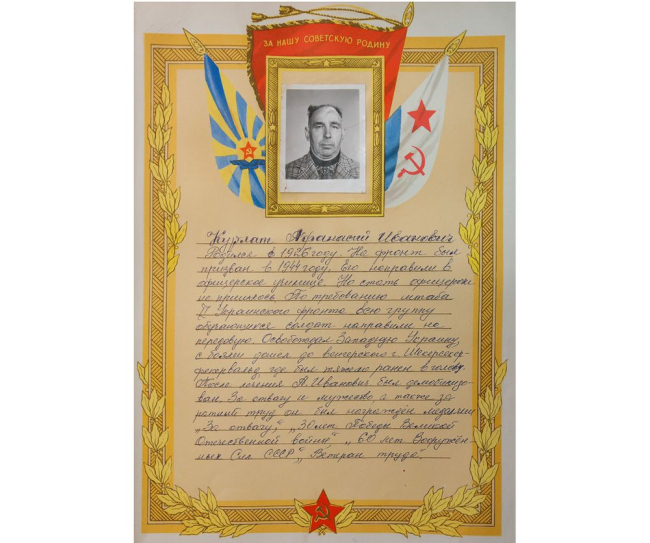 ЗА НАШУ СОВЕТСКУЮ РОДИНУ
Курлат Афанасий Иванович
Родился в 1926 году. На фронт был
призван в 1944 году. Его направили в
офицерское училище. Но стать офицером
не пришлось. По требованию штаба
Украинского фронта всю группу
обучающихся солдат направили на
передовую. Освобождал Западную Украину,
с боями дошел до венгерского г. Шекерешфе-
фехервальд, где был тяжело ранен в голову.
После лечения А. Иванович был демобилизо-
ван. За отвагу и мужество, а также за
ратный труд он был награжден медалями
„За отвагу", „30 лет Победы Великой
Отечественной войны", „60 лет Вооружён-
ных Сил СССР", „Ветеран труда".